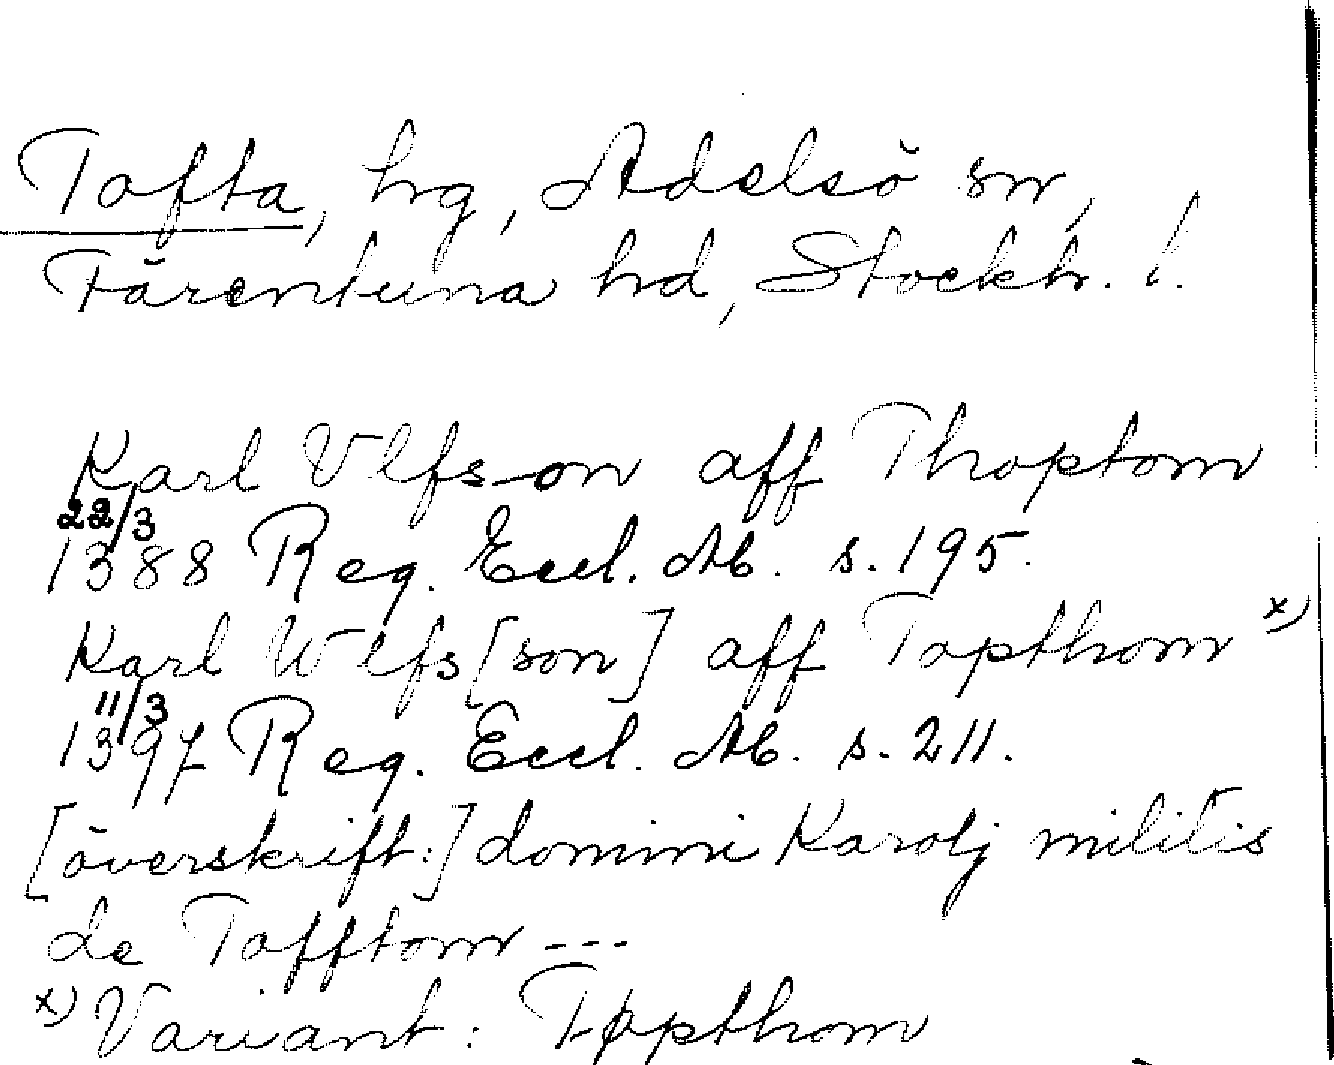 Tofta, hg, Adelsö sn,
Färentuna hd, Stockh. l.
Karl Vlfsson aff Thoptom
22/3
1388 Reg. Eccl. Ab. s. 195.
Karl Wlfs[son] aff Topthom x)
11/3
1397 Reg. Eccl. Ab. s. 211.
[överskrift:] domini Karolj militis
de Tofftom ---
x) Variant: Tøpthom